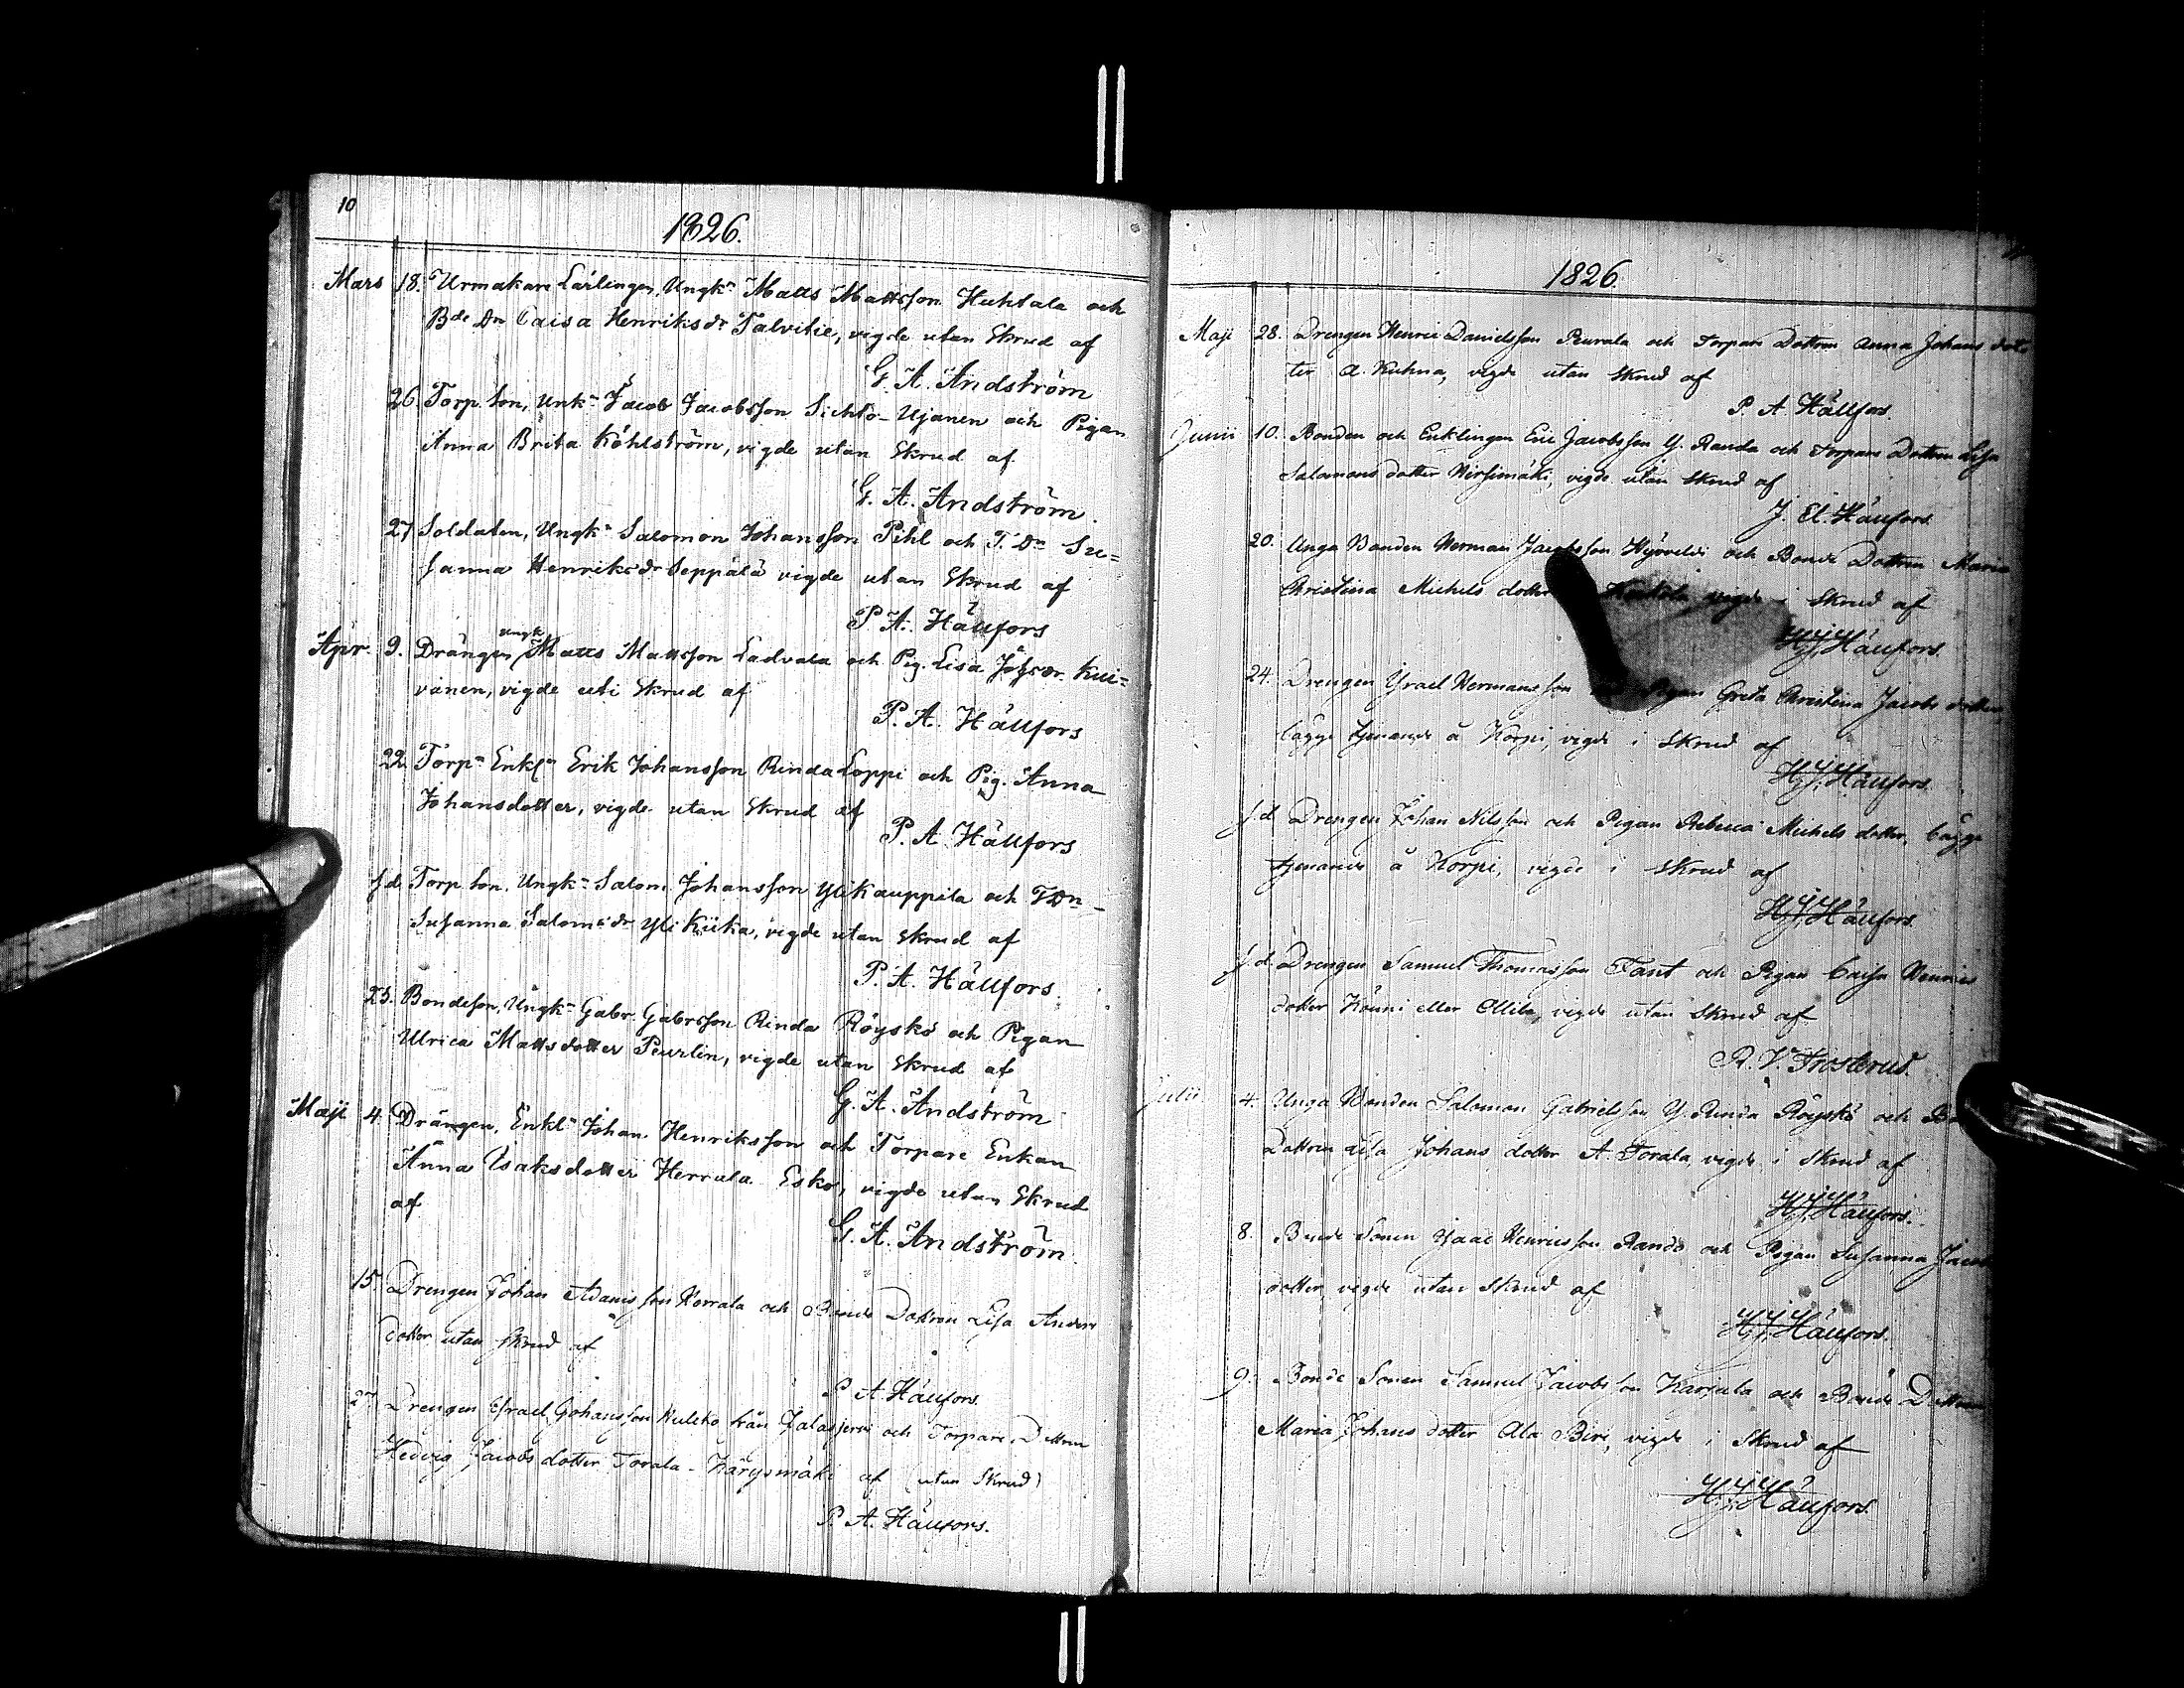 10
1826.
Mars 18. Urmakare Lärlingen, Ungkn Matts Mattsson Huhtala och
Bde Dn Caisa Henriksdr Talvitie, vigde utan Skrud af
G. A. Andström
26. Torp. Son, Unkn Jacob Jacobsson Sichto-Ujanen och Pigan
Anna Brita Köhlström, vigde utan Skrud af
G. A. Andström.
27 Soldaten, Ungkn Salomon Johansson Pihl och T. Dn Su=
sanna Henriksdr Seppälä vigde utan Skrud af
P. A. Hällfors
Apr. 9. Drängen ungk Matts Mattsson Ladvala och Pig. Lisa Johsdr. Kui=
vinen, vigde uti Skrud af
P. A. Hällfors
22. Torpn Enkln Erik Johansson Rinda Loppi och Pig. Anna
Johansdotter, vigde utan Skrud af
P. A. Hällfors
s.d. Torp. Son. Ungkn Salom. Johansson Yli Kauppila och TDn
Susanna Salomsdr Yli Kiika, vigde utan Skrud af
P. A. Hällfors.
25. Bondeson, Ungkn Gabr. Gabrsson Rinda Röyskö och Pigan
Ulrica Mattsdotter Peurlin, vigde utan Skrud af
G. A. Andström
Maji 4. Drängen, Enkln Johan Henriksson och Torpare Enkan
Anna Isaksdotter Herrala Esko, vigde utan Skrud
af
G. A. Andström.
15. Drengen Johan Adamsson Horrala och Bonde Dottren Lisa Anders
dotter utan skrud af
P. A. Hällfors.
27 Drengen Israel Johansson Hulcko från Jalasjerfvi och Torpare Dottren
Hedvig Jacobs dotter Torala-Kärysmäki af (utan Skrud)
P. A. Hällfors.
1826.
Maji 28. Drengen Henric Danielsson Peurala och Torpare Dottren Anna Johans dot=
ter A. Kuhna, vigde utan skrud af
P. A. Hällfors
Junii 10. Bonden och Enklingen Eric Jacobsson Y. Randa och Torpare Dottren Lisa
Salomons dotter Wirsimäki, vigde utan skrud af
J. El. Hällfors.
20. Unga Bonden Herman Jacobsson och Bonde Dottren Maria
Christina Michels dotter vigde i skrud af
H. J. Hällfors.
24. Drengen Ysrael Hermansson Pigan Greta Christina Jacobs dotter,
bägge tjenande å Korpi, vigde i Skrud af
H. J. Hällfors.
s.d. Drengen Johan Nilsson och Pigan Rebecca Michels dotter, bägge
tjenande å Korpi, vigde i skrud af
H. J. Hällfors.
s.d. Drengen Samuel Thomasson Fant och Pigan Caisa Henrics
dotter Kouni eller Ollila, vigde utan skrud af
R. V. Frosterus.
Julii 4. Unga Bonden Salomon Gabrielsson Y. Rinda Röyskö och
Dottren Lisa Johans dotter A. Torala, vigde i Skrud af
H. J. Hällfors.
8. Bonde Sonen Ysaac Henricsson Rando och Pigan Susanna Jacobs
dotter vigde utan Skrud af
H. J. Hällfors.
9. Bonde Sonen Samuel Jacobsson Karjula och Bonde Dottren
Maria Johans dotter Ala Biri, vigde i Skrud af
H. J. Hällfors.